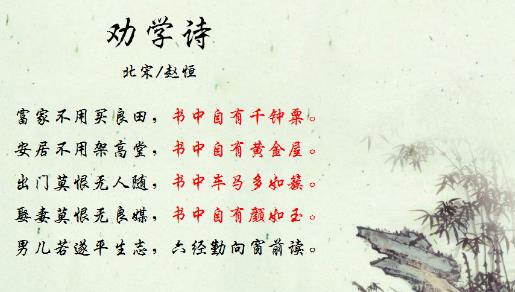 劝学诗
北宋/赵恒
富家不用买良田，书中自有千钟粟。
安居不用架高堂，书中自有黄金屋。
出门莫恨无人随，书中车马多如簇。
娶妻莫恨无良媒，书中自有颜如玉。
男儿若遂平生志，六经勤向窗前读。